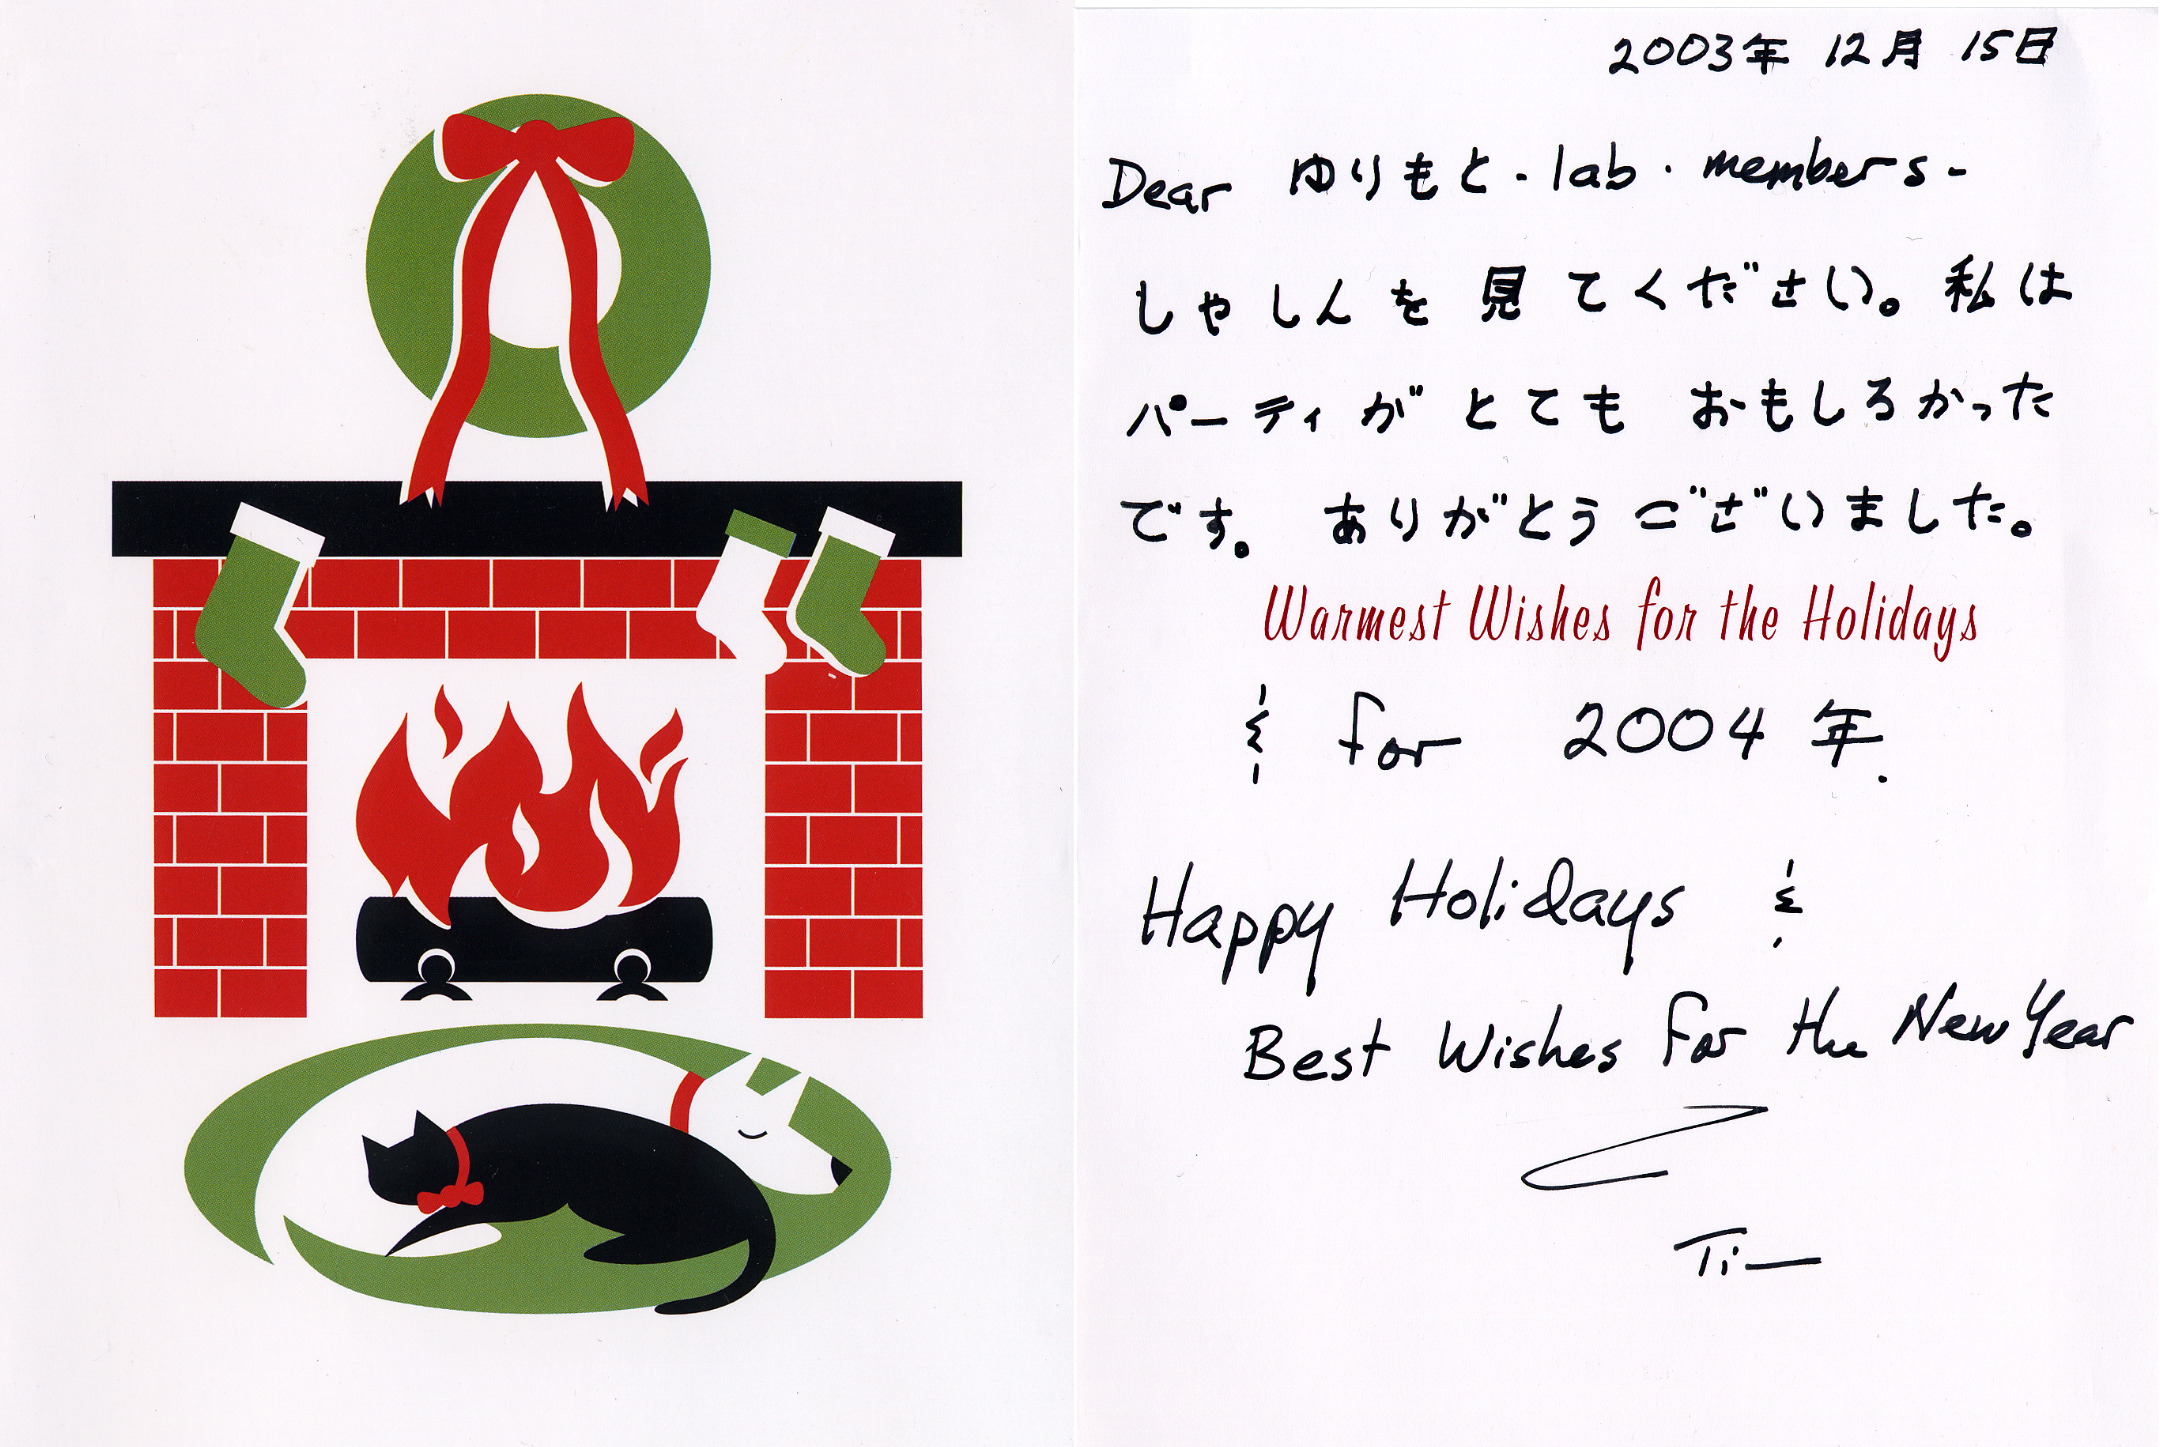 2003年 12月 15日
Dear ゆりもと-lab・members-
しゃしんを 見てください。私は
パーティが とても おもしろかった
です。 ありがとうございました。
Warmest Wishes for the Holidays
& for 2004年.
Happy Holidays &
Best Wishes for the New Year
Tim